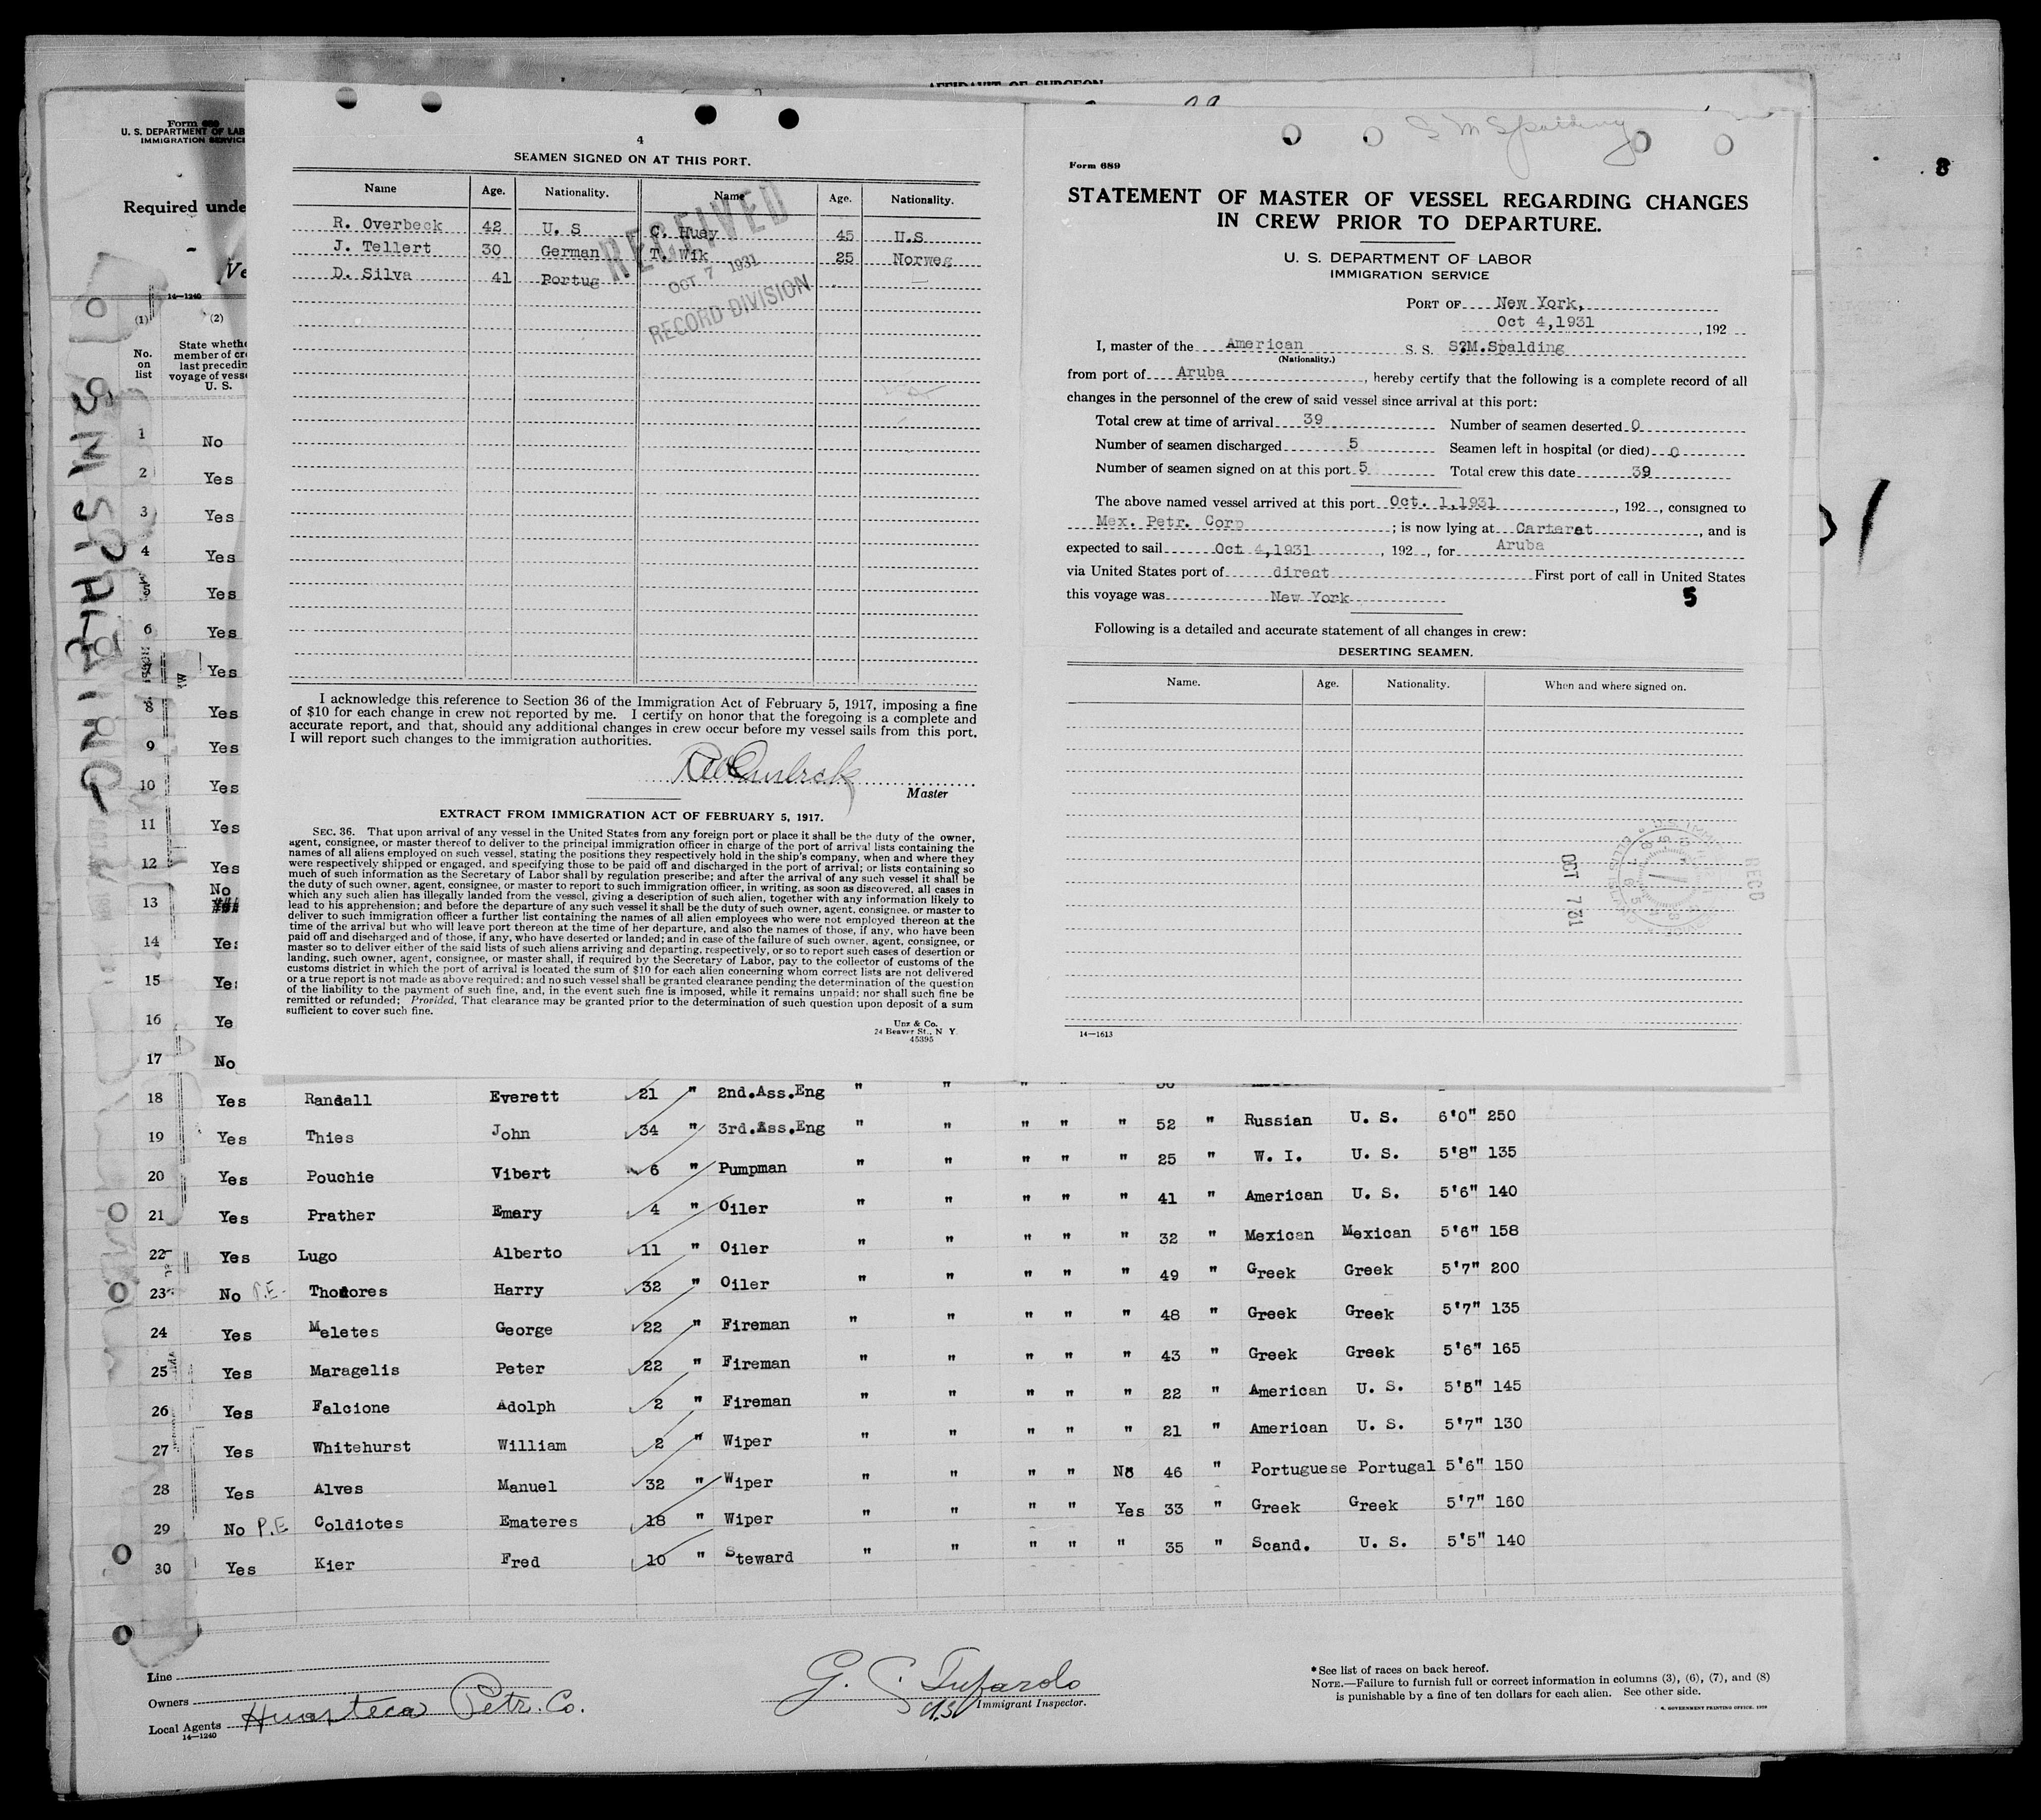 AFFIDAVIT OF SURGEON
8
Form 689
U. S. DEPARTMENT OF LAB
IMMIGRATION SERVICE
Required unde
Ve
14—1240
(1)
(2)
No. on list
State whethe
member of cre
last precedin
voyage of vesse
U. S.
SM SPALDING
1 No
2 Yes
3 Yes
4 Yes
5 Yes
6 Yes
7 Yes
8 Yes
9 Yes
10 Yes
11 Yes
12 Yes
No
13
14 Yes
15 Yes
16 Ye
17 No
4
SEAMEN SIGNED ON AT THIS PORT.
Name Age. Nationality. Name Age. Nationality.
R. Overbeck 42 U. S C. Huay 45 U.S
J. Tellert 30 German T. Wik 25 Norweg
D. Silva 41 Portug
RECEIVED
OCT 7 1931
RECORD DIVISION
I acknowledge this reference to Section 36 of the Immigration Act of February 5, 1917, imposing a fine
of $10 for each change in crew not reported by me. I certify on honor that the foregoing is a complete and
accurate report, and that, should any additional changes in crew occur before my vessel sails from this port,
I will report such changes to the immigration authorities.
Master
EXTRACT FROM IMMIGRATION ACT OF FEBRUARY 5, 1917.
SEC. 36. That upon arrival of any vessel in the United States from any foreign port or place it shall be the duty of the owner,
agent, consignee, or master thereof to deliver to the principal immigration officer in charge of the port of arrival lists containing the
names of all aliens employed on such vessel, stating the positions they respectively hold in the ship's company, when and where they
were respectively shipped or engaged, and specifying those to be paid off and discharged in the port of arrival; or lists containing so
much of such information as the Secretary of Labor shall by regulation prescribe; and after the arrival of any such vessel it shall be
the duty of such owner, agent, consignee, or master to report to such immigration officer, in writing, as soon as discovered, all cases in
which any such alien has illegally landed from the vessel, giving a description of such alien, together with any information likely to
lead to his apprehension; and before the departure of any such vessel it shall be the duty of such owner, agent, consignee, or master to
deliver to such immigration officer a further list containing the names of all alien employees who were not employed thereon at the
time of the arrival but who will leave port thereon at the time of her departure, and also the names of those, if any, who have been
paid off and discharged and of those, if any, who have deserted or landed; and in case of the failure of such owner, agent, consignee, or
master so to deliver either of the said lists of such aliens arriving and departing, respectively, or so to report such cases of desertion or
landing, such owner, agent, consignee, or master shall, if required by the Secretary of Labor, pay to the collector of customs of the
customs district in which the port of arrival is located the sum of $10 for each alien concerning whom correct lists are not delivered
or a true report is not made as above required; and no such vessel shall be granted clearance pending the determination of the question
of the liability to the payment of such fine, and, in the event such fine is imposed, while it remains unpaid; nor shall such fine be
remitted or refunded; Provided, That clearance may be granted prior to the determination of such question upon deposit of a sum
sufficient to cover such fine.
Unz & Co.
24 Beaver St., N Y.
45395
S M Spalding
Form 689
STATEMENT OF MASTER OF VESSEL REGARDING CHANGES
IN CREW PRIOR TO DEPARTURE.
U. S. DEPARTMENT OF LABOR
IMMIGRATION SERVICE
PORT OF New York,
Oct 4,1931 , 192
I, master of the American S. S. S?M.Spalding
(Nationality.)
from port of Aruba , hereby certify that the following is a complete record of all
changes in the personnel of the crew of said vessel since arrival at this port:
Total crew at time of arrival 39 Number of seamen deserted 0
Number of seamen discharged 5 Seamen left in hospital (or died) 0
Number of seamen signed on at this port 5 Total crew this date 39
The above named vessel arrived at this port Oct. 1,1931 , 192 , consigned to
Mex. Petr. Corp ; is now lying at Carteret , and is
expected to sail Oct 4,1931 , 192 , for Aruba
via United States port of direct First port of call in United States
this voyage was New York
5
Following is a detailed and accurate statement of all changes in crew:
DESERTING SEAMEN.
Name. Age. Nationality. When and where signed on.
OCT 7 31
RECD
14—1613
18 Yes Randall Everett 21 " 2nd.Ass.Eng " " " "
19 Yes Thies John 34 " 3rd.Ass.Eng " " " " " 52 " Russian U. S. 6'0" 250
20 Yes Pouchie Vibert 6 " Pumpman " " " " " 25 " W. I. U. S. 5'8" 135
21 Yes Prather Emary 4 " Oiler " " " " " 41 " American U. S. 5'6" 140
22 Yes Lugo Alberto 11 " Oiler " " " " " 32 " Mexican Mexican 5'6" 158
23 No P.E. Thodores Harry 32 " Oiler " " " " " 49 " Greek Greek 5'7" 200
24 Yes Meletes George 22 " Fireman " " " " " 48 " Greek Greek 5'7" 135
25 Yes Maragelis Peter 22 " Fireman " " " " " 43 " Greek Greek 5'6" 165
26 Yes Falcione Adolph 2 " Fireman " " " " " 22 " American U. S. 5'5" 145
27 Yes Whitehurst William 2 " Wiper " " " " " 21 " American U. S. 5'7" 130
28 Yes Alves Manuel 32 " Wiper " " " " No 46 " Portuguese Portugal 5'6" 150
29 No P.E Coldiotes Emateres 18 " Wiper " " " " Yes 33 " Greek Greek 5'7" 160
30 Yes Kier Fred 10 " Steward " " " " " 35 " Scand. U. S. 5'5" 140
Line
Owners
Local Agents Huasteca Petr. Co.
14—1240
G. S. Tufarolo
Immigrant Inspector.
*See list of races on back hereof.
NOTE.—Failure to furnish full or correct information in columns (3), (6), (7), and (8)
is punishable by a fine of ten dollars for each alien. See other side.
GOVERNMENT PRINTING OFFICE